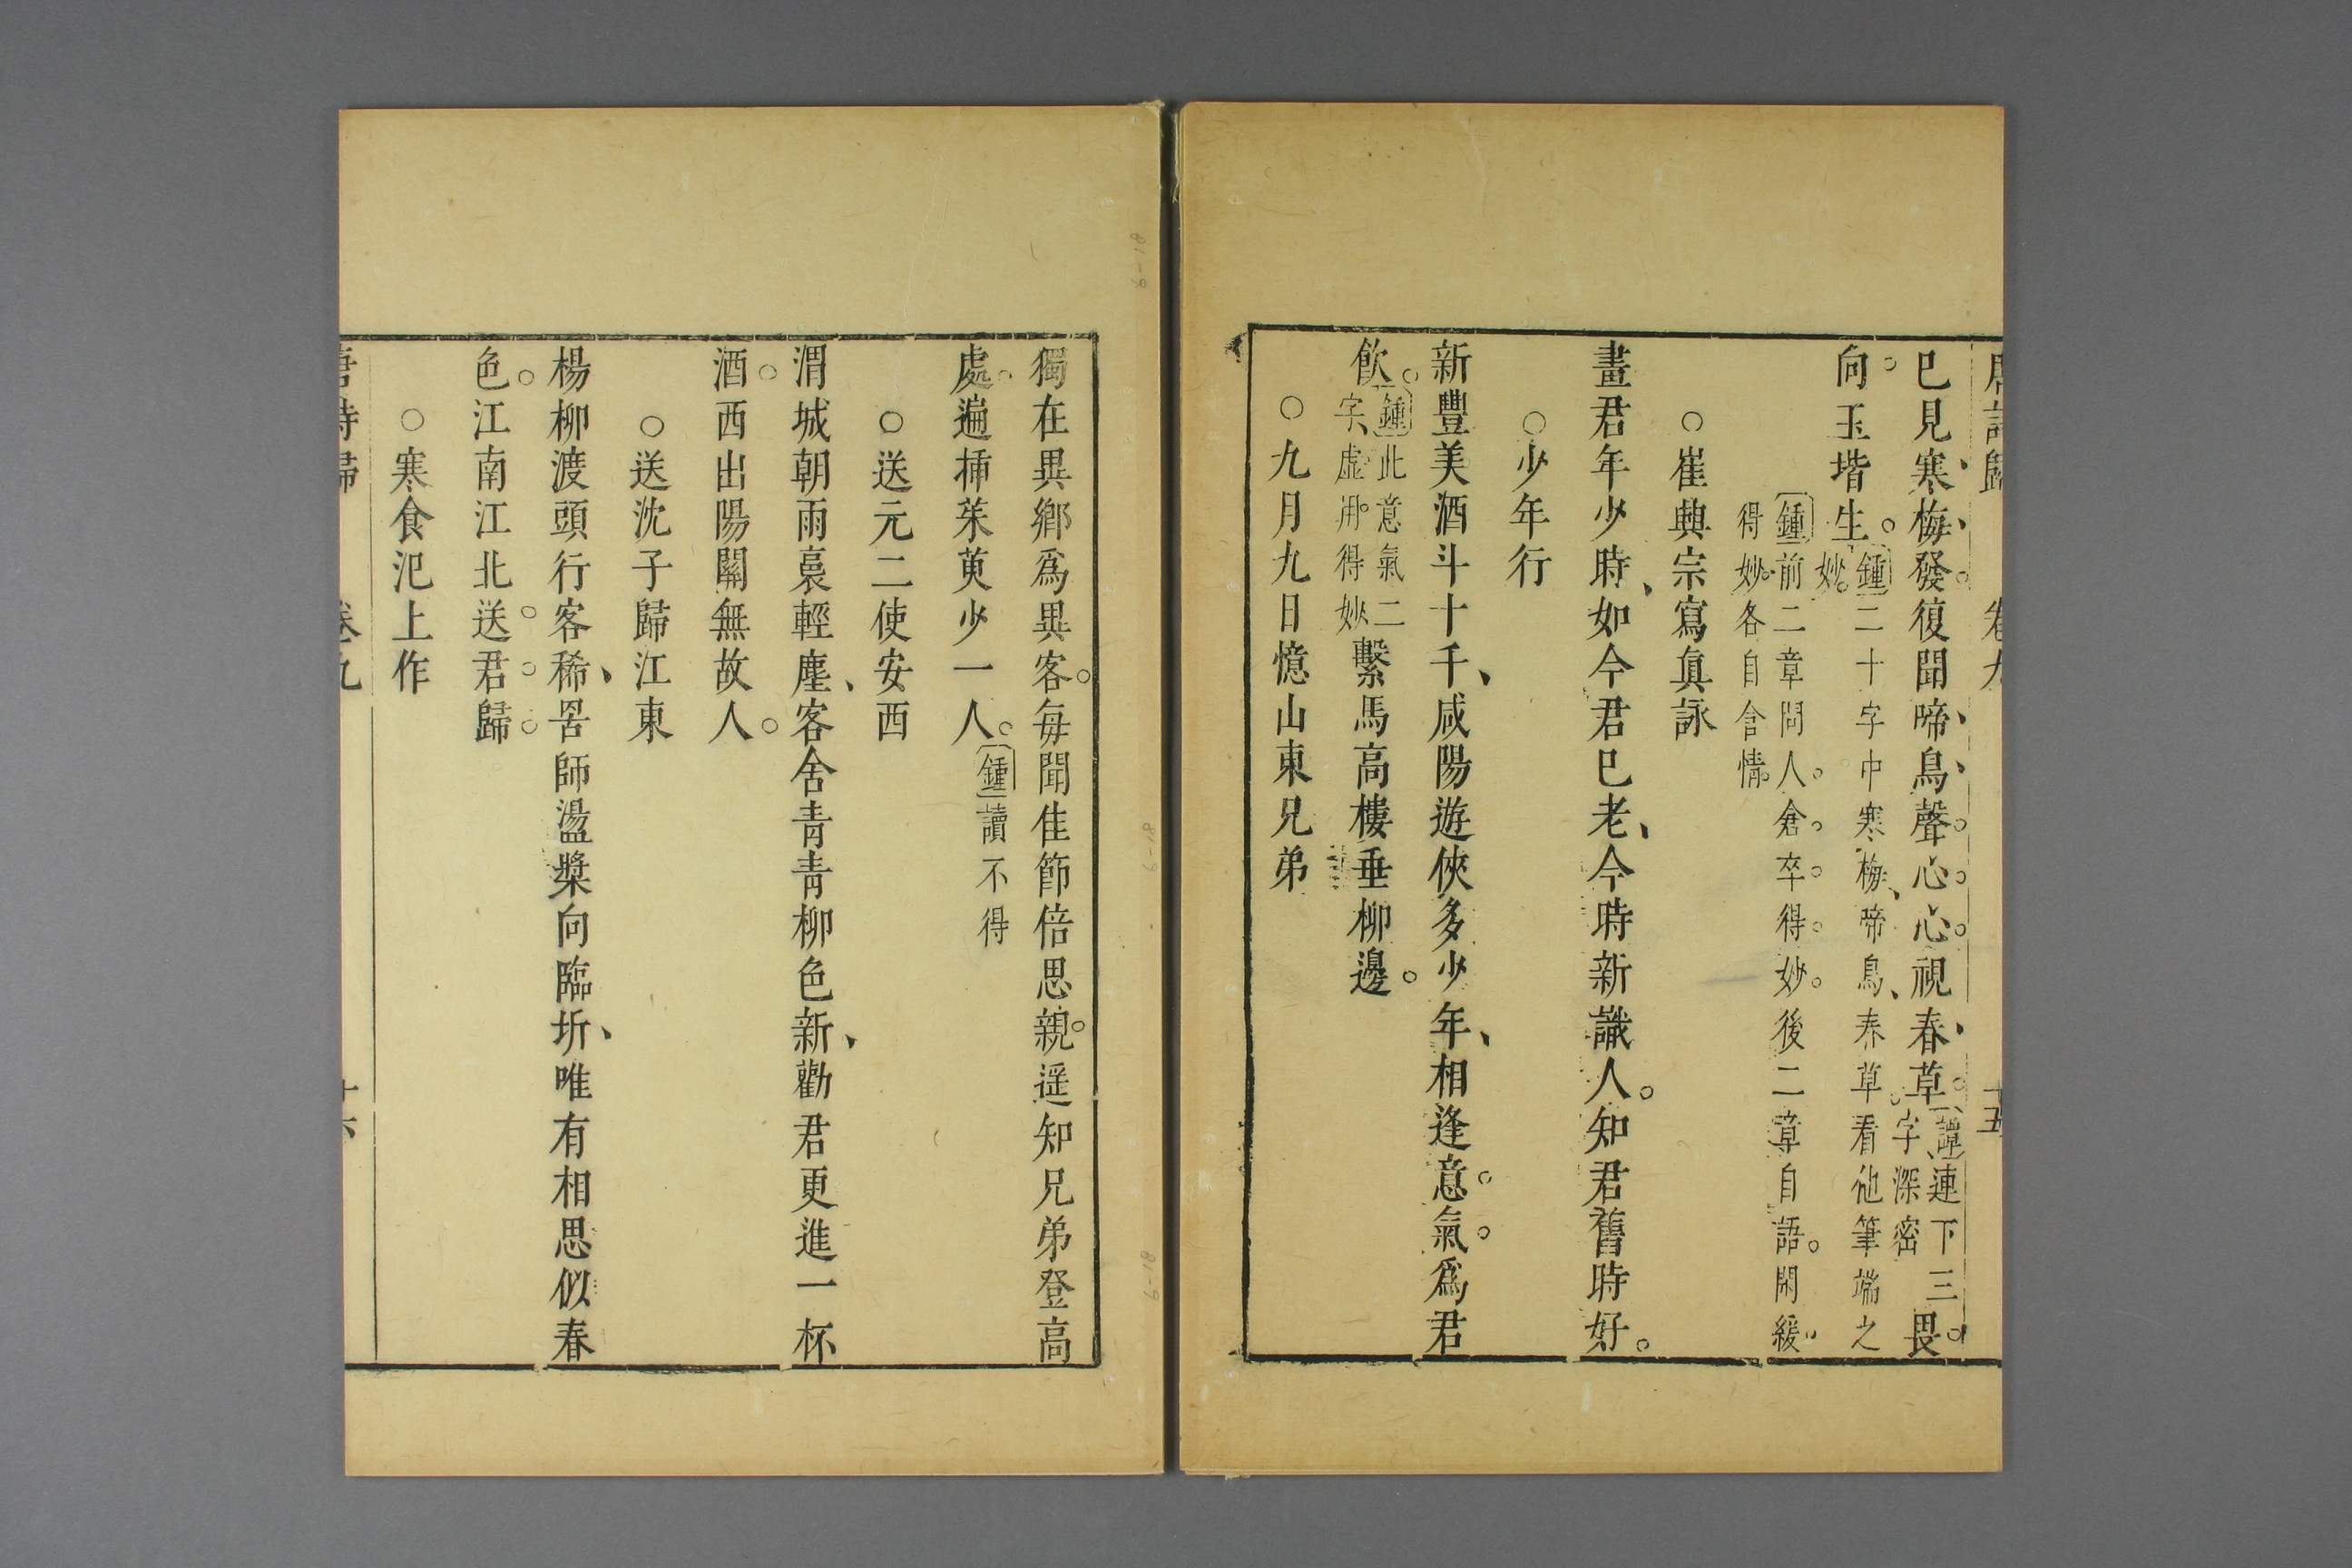 唐詩歸　卷九　十五
已見寒梅發復聞啼鳥聲心心視春草［譚］連下三字深密畏
向玉堦生［鍾］二十字中寒梅啼鳥春草看他筆端之妙
［鍾］前二章問人倉卒得妙後二章自語閑緩得妙各自含情
○崔興宗寫眞詠
畫君年少時如今君已老今時新識人知君舊時好
○少年行
新豐美酒斗十千咸陽遊俠多少年相逢意氣爲君
飲［鍾］此意氣二字虛用得妙繫馬高樓垂柳邊
○九月九日憶山東兄弟
獨在異鄉爲異客每聞佳節倍思親遥知兄弟登高
處遍揷茱萸少一人［鍾］讀不得
○送元二使安西
渭城朝雨裛輕塵客舍青青柳色新勸君更進一杯
酒西出陽關無故人
○送沈子歸江東
楊柳渡頭行客稀罟師盪槳向臨圻唯有相思似春
色江南江北送君歸
○寒食汜上作
唐詩歸　卷九　十六